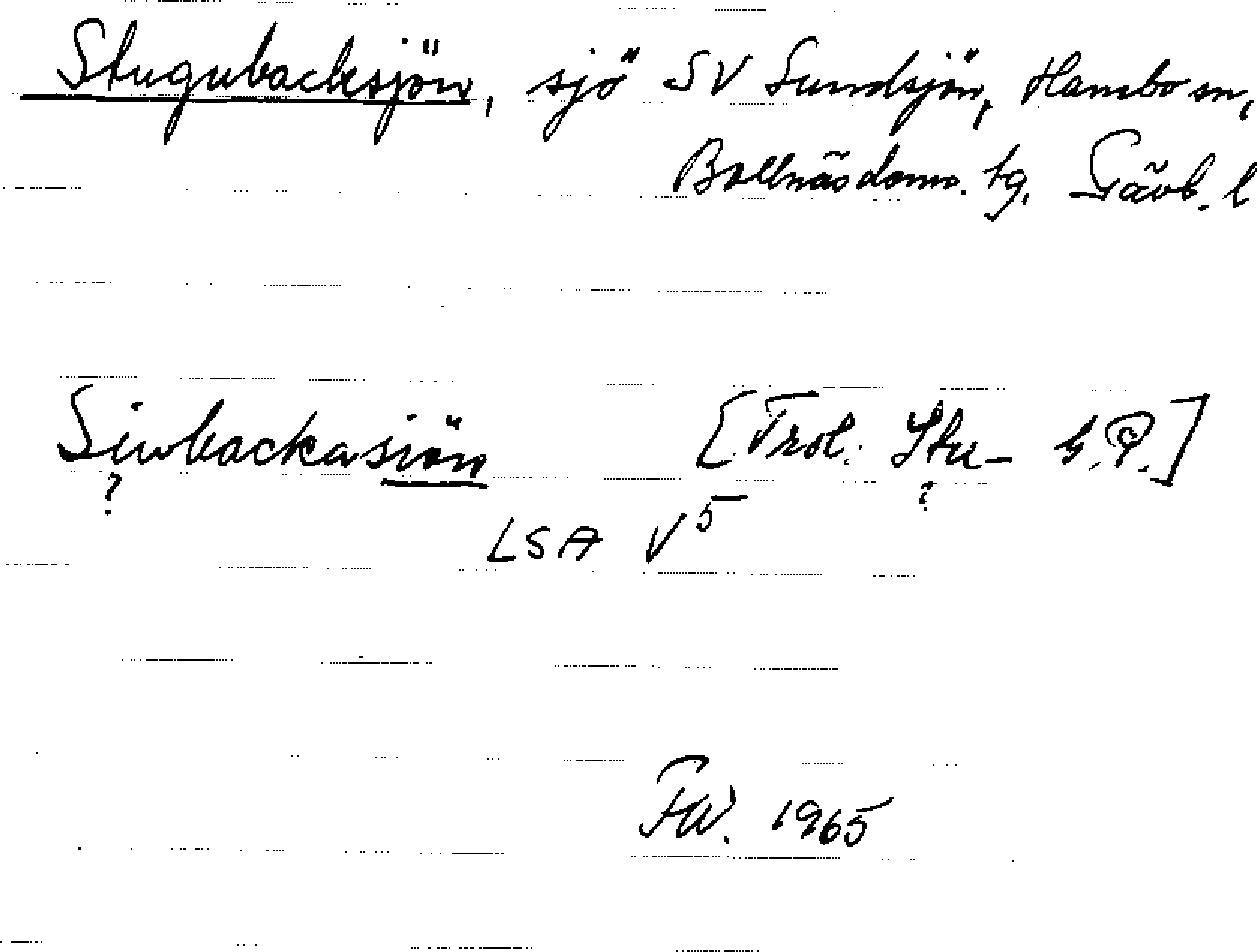 Stugubacksjön, sjö SV Sundsjön, Hanebo sn,
Bollnäs doms. tg. Gävb. l
Siwbackasiön [Trol. Stu- G.P.]
? ?
LSA V5
FW. 1965